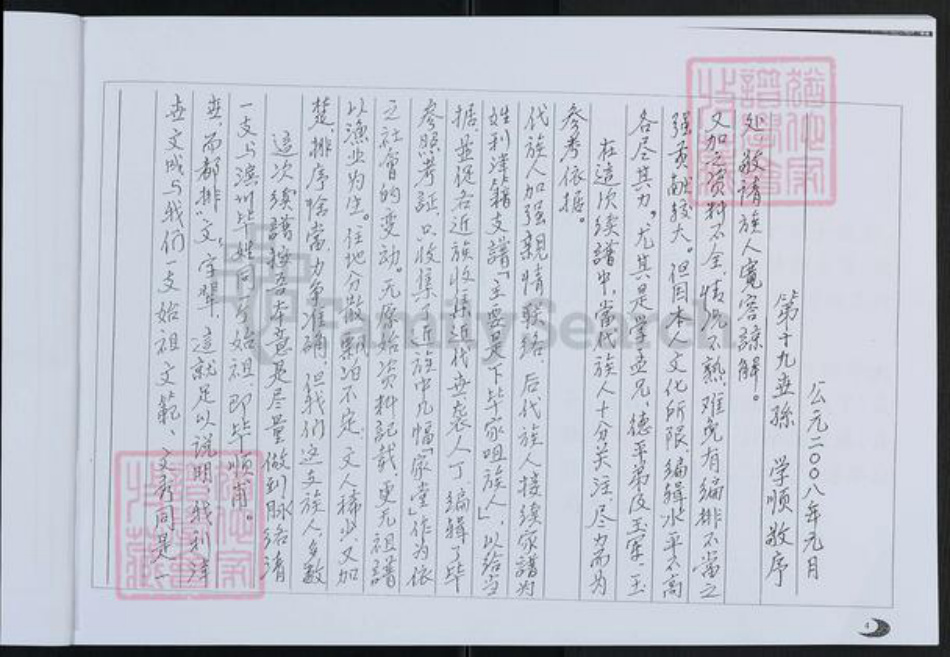 世文成与我们一支始祖文範、文彩同是一
世,而都排"文"字辈,这就足以说明,我利津
一支与滨州毕姓同一始祖,即毕顺甫。
这次续譜极吾本意是尽量做到脉络清
楚,排序恰当,力争准确,但我们这支族人多数
以渔业为生。住地分散,飘泊不定,文人稀少,又加
之社会的变动。无原始资料记载,更无祖譜
参照考証,只收集了近族中几幅「家堂」作为依
据,并从各近族收集近代世袭人丁,编辑了毕
姓利津籍支譜「主要是下毕家咀族人」,以给当
代族人加强亲情联络,后代族人接续家譜为
参考依据。
在这次续譜中,当代族人十分关注,尽力而为
各尽其力,尤其是学孟兄,德平弟及玉军、玉
强贡献较大。但因本人文化所限,编辑水平不高
又加之资料不全,情况不熟,难免有编排不当之
处,敬请族人寬容諒解。
第十九世孫 学顺敬序
公元二〇〇八年元月
4
猶他家
譜學會
收藏
猶他家
譜學會
收藏
FamilySearch